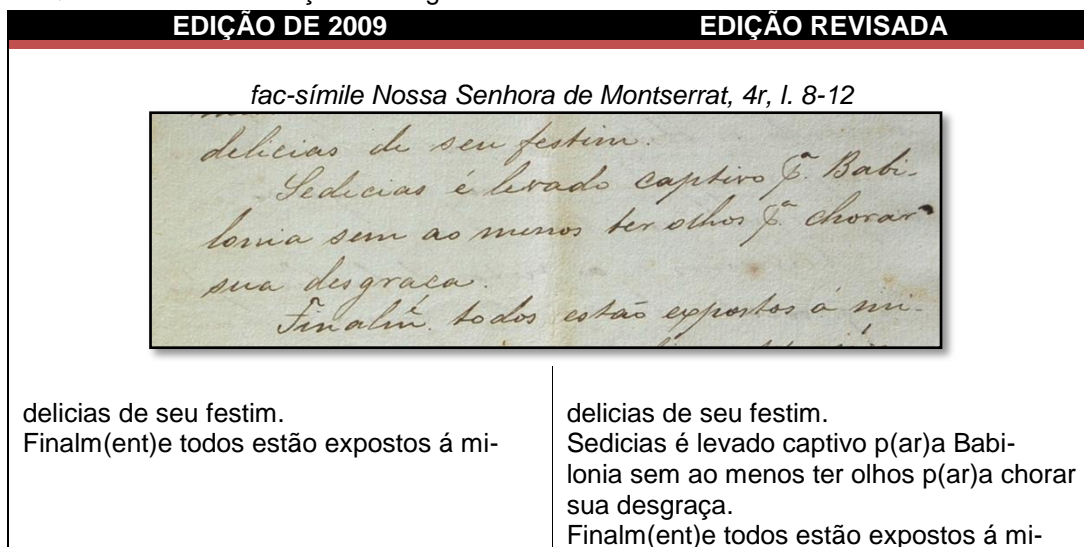 EDIÇÃO DE 2009
EDIÇÃO REVISADA
fac-símile Nossa Senhora de Montserrat, 4r, l. 8-12
delicias de seu festim.
Sedecias é levado captivo pª. Babi-
lonia sem ao menos ter olhos pª. chorar
sua desgraça.
Finalmᵉ. todos estão expostos á mi-
delicias de seu festim.
Finalm(ent)e todos estão expostos á mi-
delicias de seu festim.
Sedicias é levado captivo p(ar)a Babi-
lonia sem ao menos ter olhos p(ar)a chorar
sua desgraça.
Finalm(ent)e todos estão expostos á mi-